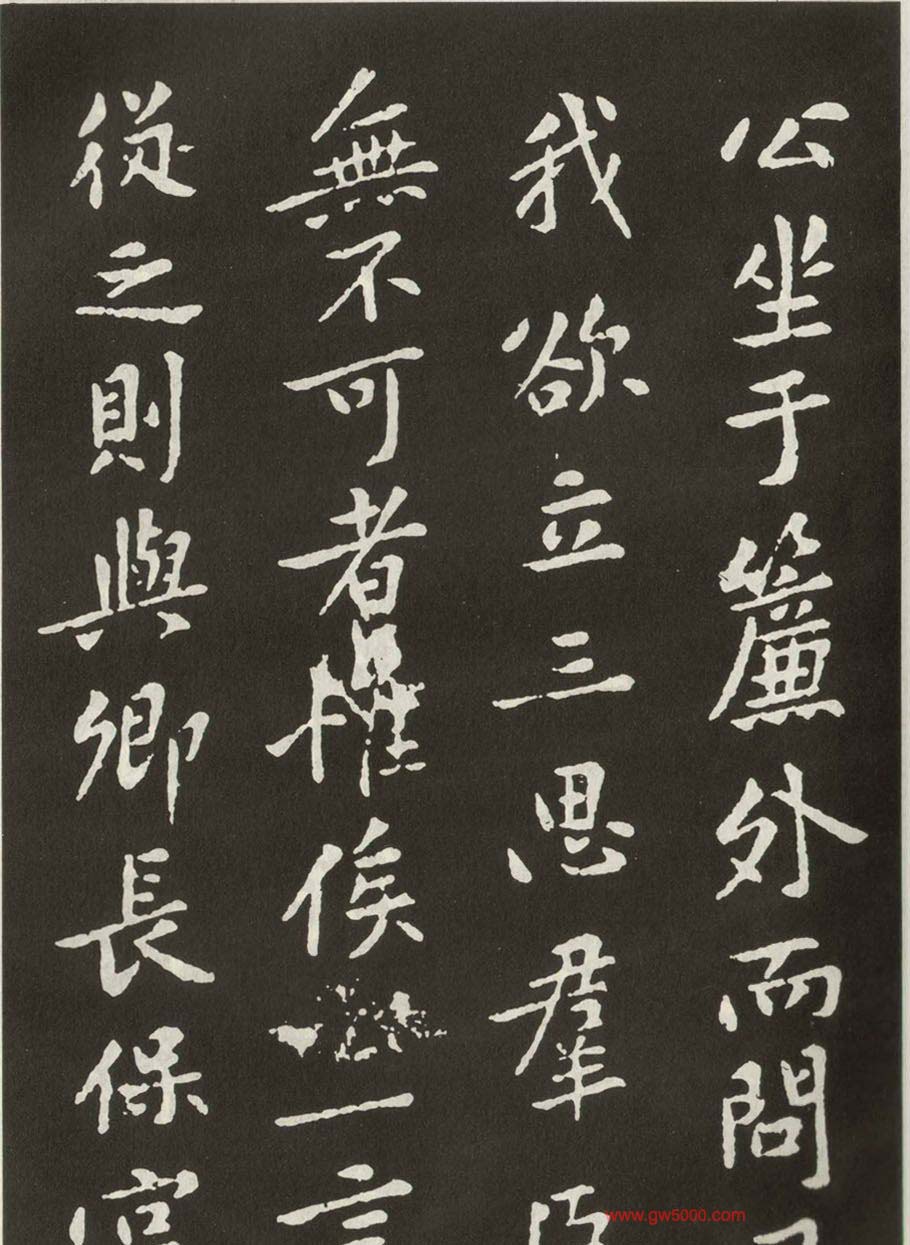 公坐于簾外而問
我欲立三思羣臣
無不可者惟俟一言
從之則與卿長保
www.gw5000.com